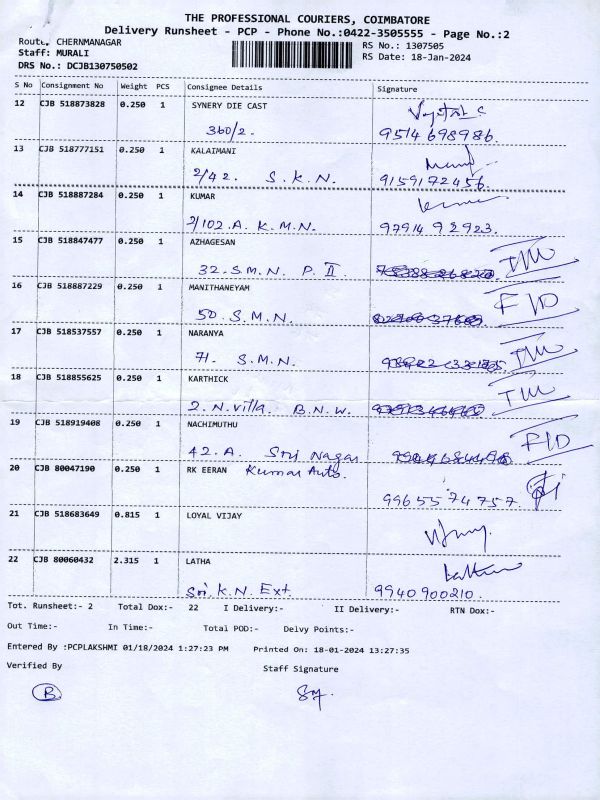 THE PROFESSIONAL COURIERS, COIMBATORE
Delivery Runsheet - PCP - Phone No.:0422-3505555 - Page No.:2
Route, CHERNMANAGAR RS No.: 1307505
Staff: MURALI RS Date: 18-Jan-2024
DRS No.: DCJB130750502
S No Consignment No Weight PCS Consignee Details Signature
12 CJB 518873828 0.250 1 SYNERY DIE CAST
360/2. 9514698986.
13 CJB 518777151 0.250 1 KALAIMANI
2/42. S.K.N. 9159172456.
14 CJB 518887284 0.250 1 KUMAR
2/102.A. K.M.N. 97914 92923.
15 CJB 518847477 0.250 1 AZHAGESAN
32.S.M.N. P. II
16 CJB 518887229 0.250 1 MANITHANEYAM F/D
50 S.M.N.
17 CJB 518537557 0.250 1 NARANYA
71. S.M.N.
18 CJB 518855625 0.250 1 KARTHICK
2.N.Villa. B.N.W.
19 CJB 518919408 0.250 1 NACHIMUTHU F/D
42.A. Sri Nagar
20 CJB 80047190 0.250 1 RK EERAN Kumar Auto.
99655 74757.
21 CJB 518683649 0.815 1 LOYAL VIJAY
22 CJB 80060432 2.315 1 LATHA
Sri.K.N. Ext. 9940900210.
Tot. Runsheet:- 2 Total Dox:- 22 I Delivery:- II Delivery:- RTN Dox:-
Out Time:- In Time:- Total POD:- Delvy Points:-
Entered By :PCPLAKSHMI 01/18/2024 1:27:23 PM Printed On: 18-01-2024 13:27:35
Verified By Staff Signature
B